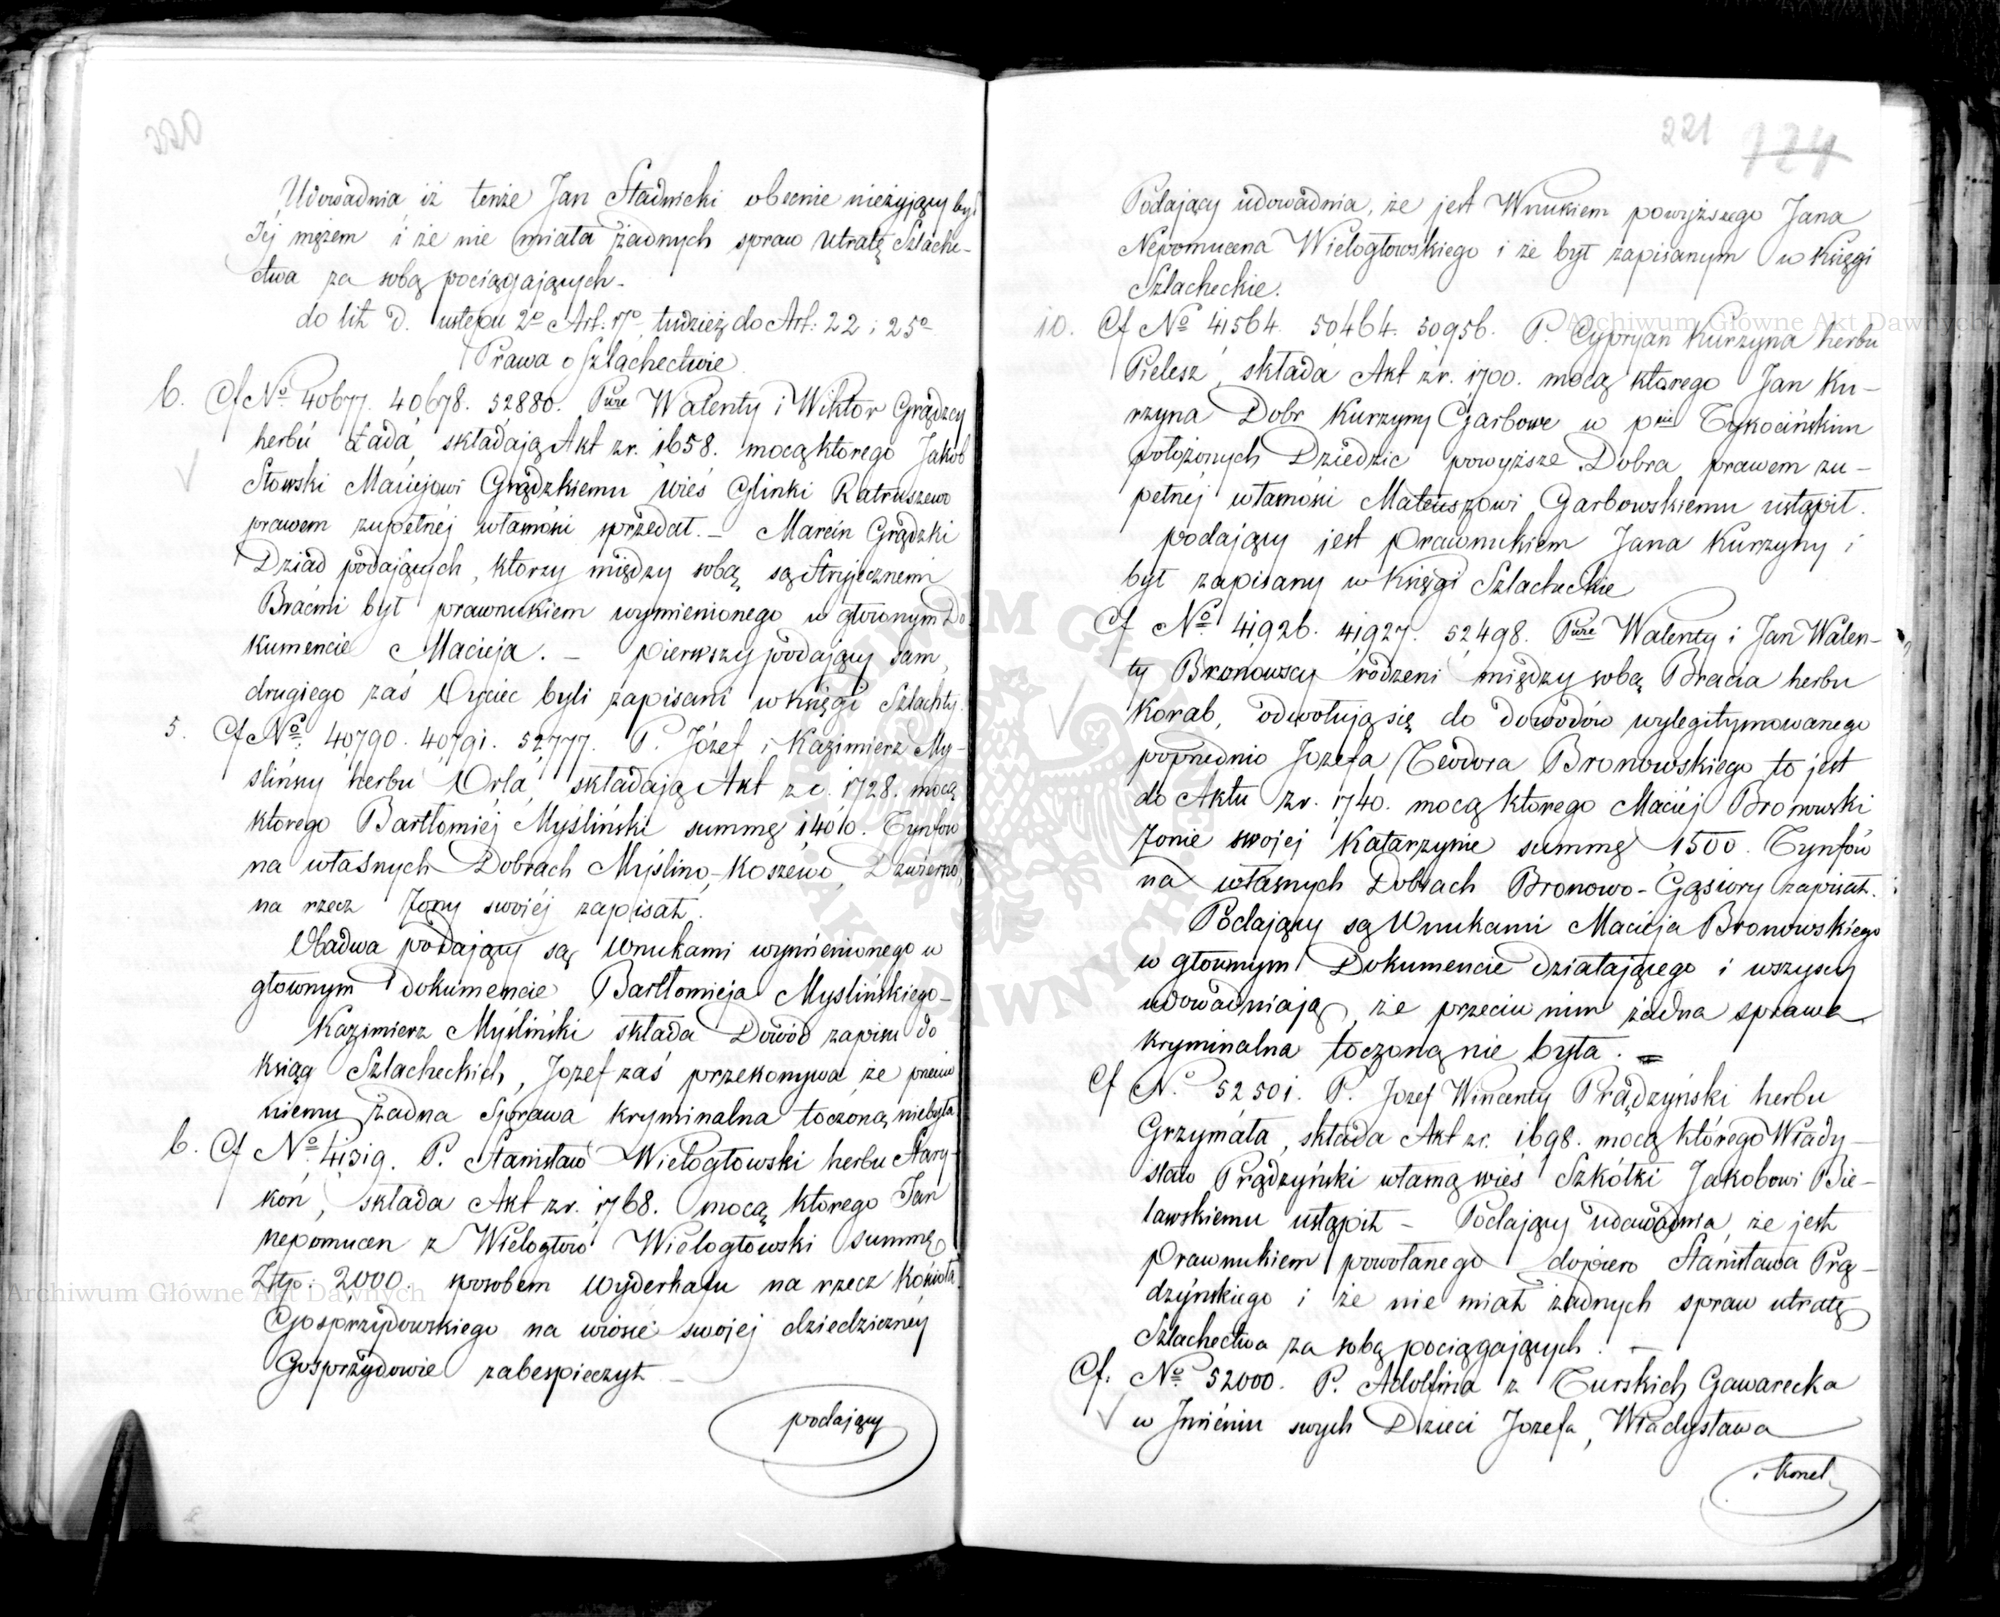 220
Udowadnia iż tenże Jan Stadnicki obecnie nieżyjący był
Jéj mężem i że nie miała żadnych spraw utratę Szlache-
ctwa za sobą pociągających.
do lit. D. ustępu 2º Art. 17º tudzież do Art: 22 i 25º
Prawa o Szlachectwie
6. Cf Nº 40677. 40678. 52880. Walenty i Wiktor Grądzcy
herbu Łada, składają Akt z r. 1658. mocą którego Jakób
Stowski Maciejowi Grądzkiemu wieś Glinki Ratruszewo
prawem zupełnéj własności sprzedał. – Marcin Grądzki
Dziad podających, którzy między sobą są Stryjecznemi
Braćmi był prawnukiem wymienionego w głównym Do
kumencie Macieja. – pierwszy podający sam,
drugiego zaś Oyciec byli zapisani w księgi Szlachty.
5. Cf Nº 40790. 40791. 52777. P. Józef i Kazimierz My-
ślińscy herbu Orla, składają Akt z r. 1728. mocą
którego Bartłomiéj Myśliński summę 1400. Tynfów
na własnych Dobrach Myślino-Koszewo, Dzwierzno,
na rzecz Żony swojéj zapisał.
Obadwa podający są Wnukami wymienionego w
głownym dokumencie Bartłomieja Myslińskiego-
Kazimierz Myśliński składa Dowód zapisu do
ksiąg Szlacheckich, Jozef zaś przekonywa że przeciw
niemu żadna Sprawa kryminalna toczoną niebyła
6. Cf Nº 41319. P. Stanisław Wielogłowski herbu Stary-
koń, składa Akt z r. 1768. mocą którego Jan
nepomucen z Wielogłow Wielogłowski summę
Złtp: 2000. sposobem Wyderkafu na rzecz Kościoła
Gosprzydowskiego na wiosce swojej dziedzicznéj
Gosprzydowie zabespieczył –
podający
221 124
Podający udowadnia, że jest Wnukiem powyższego Jana
Nepomucena Wielogłowskiego i że był zapisanym w Księgi
Szlacheckie.
10. Cf Nº 41564. 50464. 50956. P. Cypryan Kurzyna herbu
Pielesz, składa Akt z r. 1700. mocą którego Jan Ku-
rzyna Dobr Kurzyny Czarbowe w pcie Tykocińskim
położonych Dziedzic powyższe Dobra prawem zu-
pełnéj własności Mateuszowi Garbowskiemu ustąpił.
podający jest Prawnukiem Jana Kurzyny i
był zapisany w Księgi Szlacheckie
Cf Nº 41926. 41927. 52498. Walenty i Jan Walen-
ty Bronowscy rodzeni między sobą Bracia herbu
Korab, odwołują się do dowodów wylegitymowanego
poprzednio Jozefa Teodora Bronowskiego to jest
do Aktu z r. 1740. mocą którego Maciéj Bronowski
Żonie swojej Katarzynie summę 1500. Tynfów
na własnych Dobrach Bronowo-Gąsiory zapisał.
Podający są Wnukami Macieja Bronowskiego
w głównym Dokumencie działającego i wszyscy
udowadniają, że przeciw nim żadna sprawa
kryminalna toczoną nie była. =
Cf N. 52501. P. Jozef Wincenty Prądzyński herbu
Grzymała, składa Akt z r. 1698. mocą którégo Włady-
sław Prądzyński własną wieś Szkółki Jakobowi Bie-
lawskiemu ustąpił – Podający udowadnia, że jest
Prawnukiem powołanego dopiero Stanisława Prą-
dzyńskiego i że nie miał żadnych spraw utratę
Szlachectwa za sobą pociągających. –
Cf. Nº 52000. P. Adolfina z Turskich Gawarecka
w Imieniu swych Dzieci Jozefa, Władysława
i Konst
Archiwum Główne Akt Dawnych
Archiwum Główne Akt Dawnych
ARCHIWUM GŁÓWNE AKT DAWNYCH